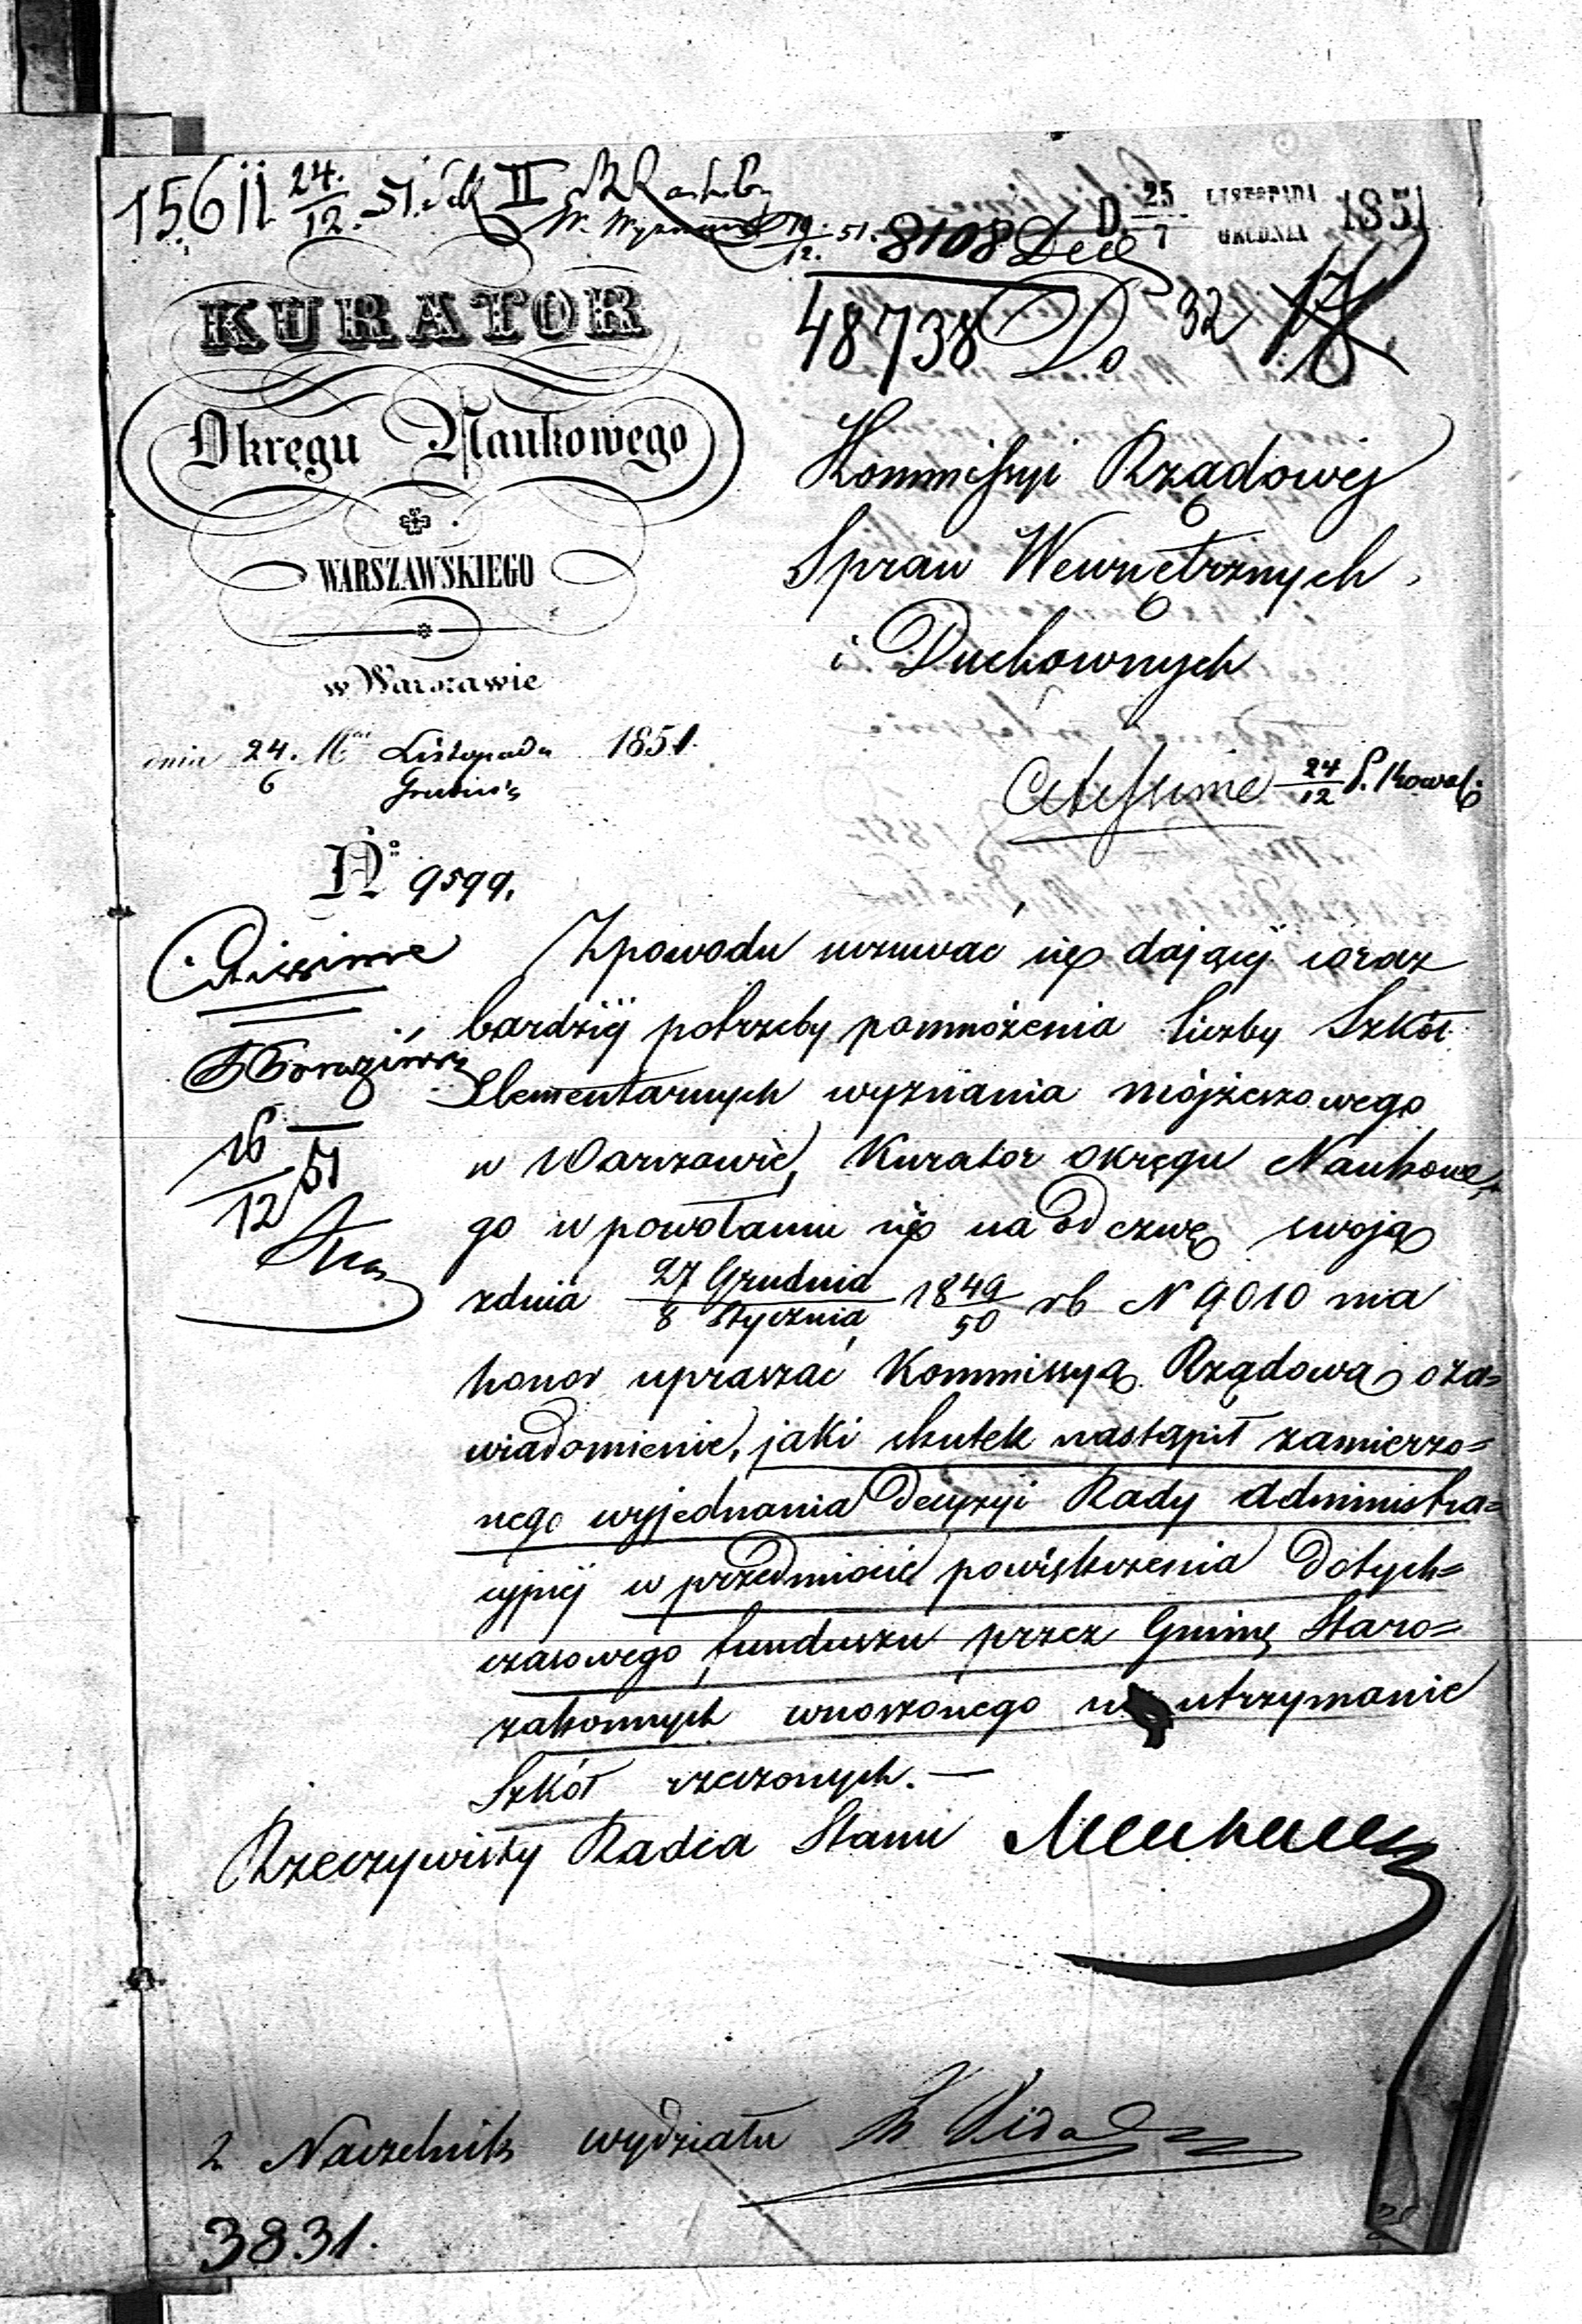 15611 24/12 51. II
D. 25/7 LISTOPADA GRUDNIA 1851
19/12 51. 8108
48738 32
KURATOR
Okręgu Naukowego
WARSZAWSKIEGO
w Warszawie
dnia 24/6 Listopada Grudnia 1851.
№ 9599.
Do
Kommissyi Rządowéj
Spraw Wewnętrznych
i Duchownych
Citissime 24/12
Citissime
16/12 51
Zpowodu uczuwać się dającéj coraz
bardziéj potrzeby pomnożenia liczby Szkół
Elementarnych wyznania mójżeszowego
w Warszawie, Kurator okręgu Naukowe-
go w powołaniu się na odezwę swoją
zdnia 27 Grudnia/8 Stycznia 1849/50 rb N 9010 ma
honor upraszać Kommissyą Rządową oza=
wiadomienie, jaki skutek nastąpił zamierzo=
nego wyjednania decyzyi Rady administra=
cyjnéj w przedmiocie powiększenia dotych=
czasowego funduszu przez Gminę Staro=
zakonnych wnoszonego na utrzymanie
Szkół rzeczonych. —
Rzeczywisty Radca Stanu
Naczelnik wydziału
3831.